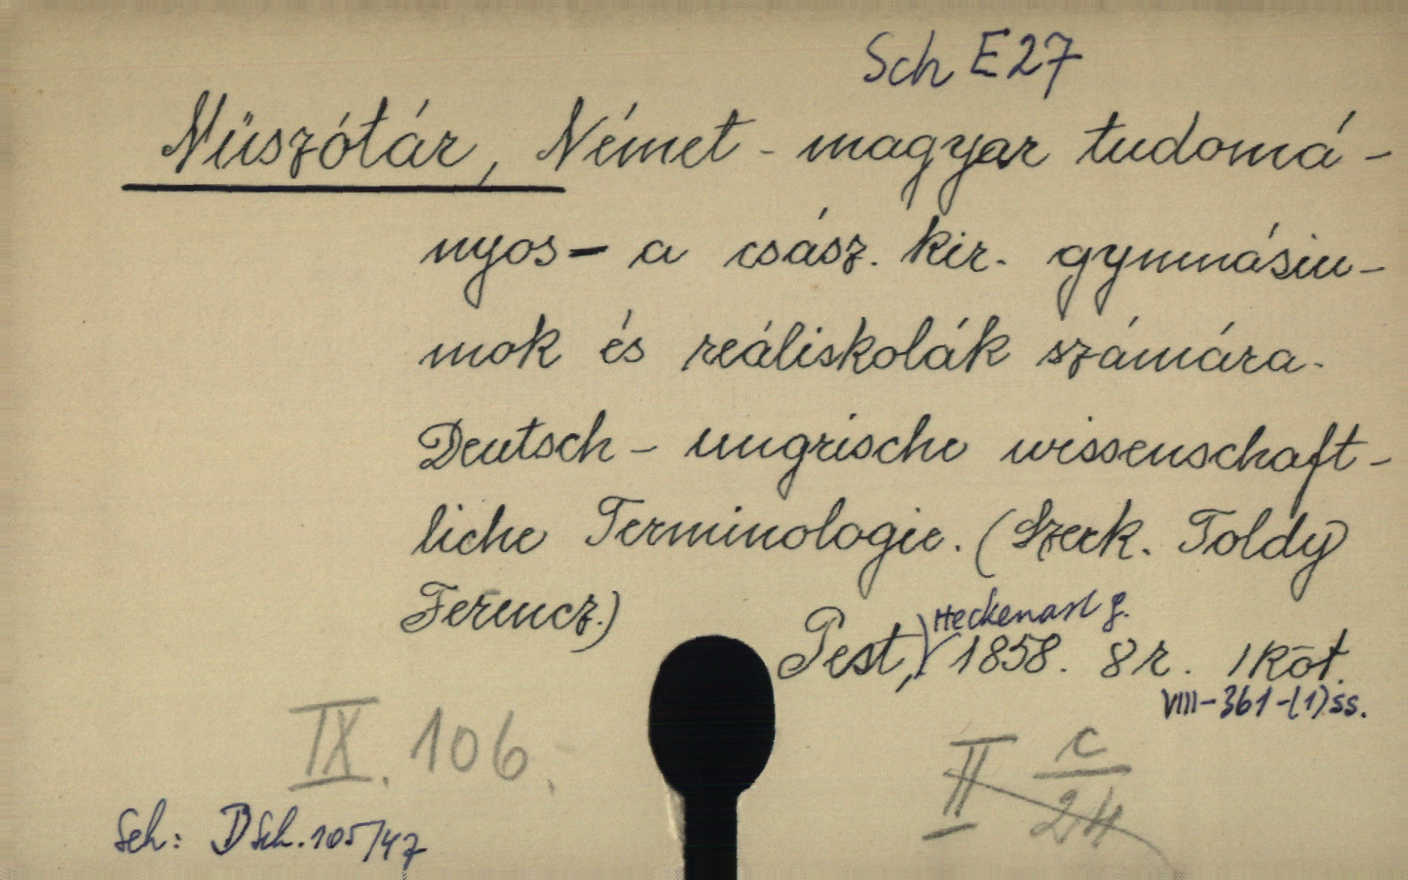 Sch E27
Müszótár, Német - magyar tudomá-
nyos - a csász. kir. gymnásiu-
mok és reáliskolák számára.
Deutsch - ungrische wissenschaft-
liche Terminologie. (Szerk. Toldy
Ferencz.)
Heckenast g.
Pest, 1858. 8 r. 1 köt.
VIII-361-(1) ss.
IX. 106.
II c/24
Sch: DSch. 105/47